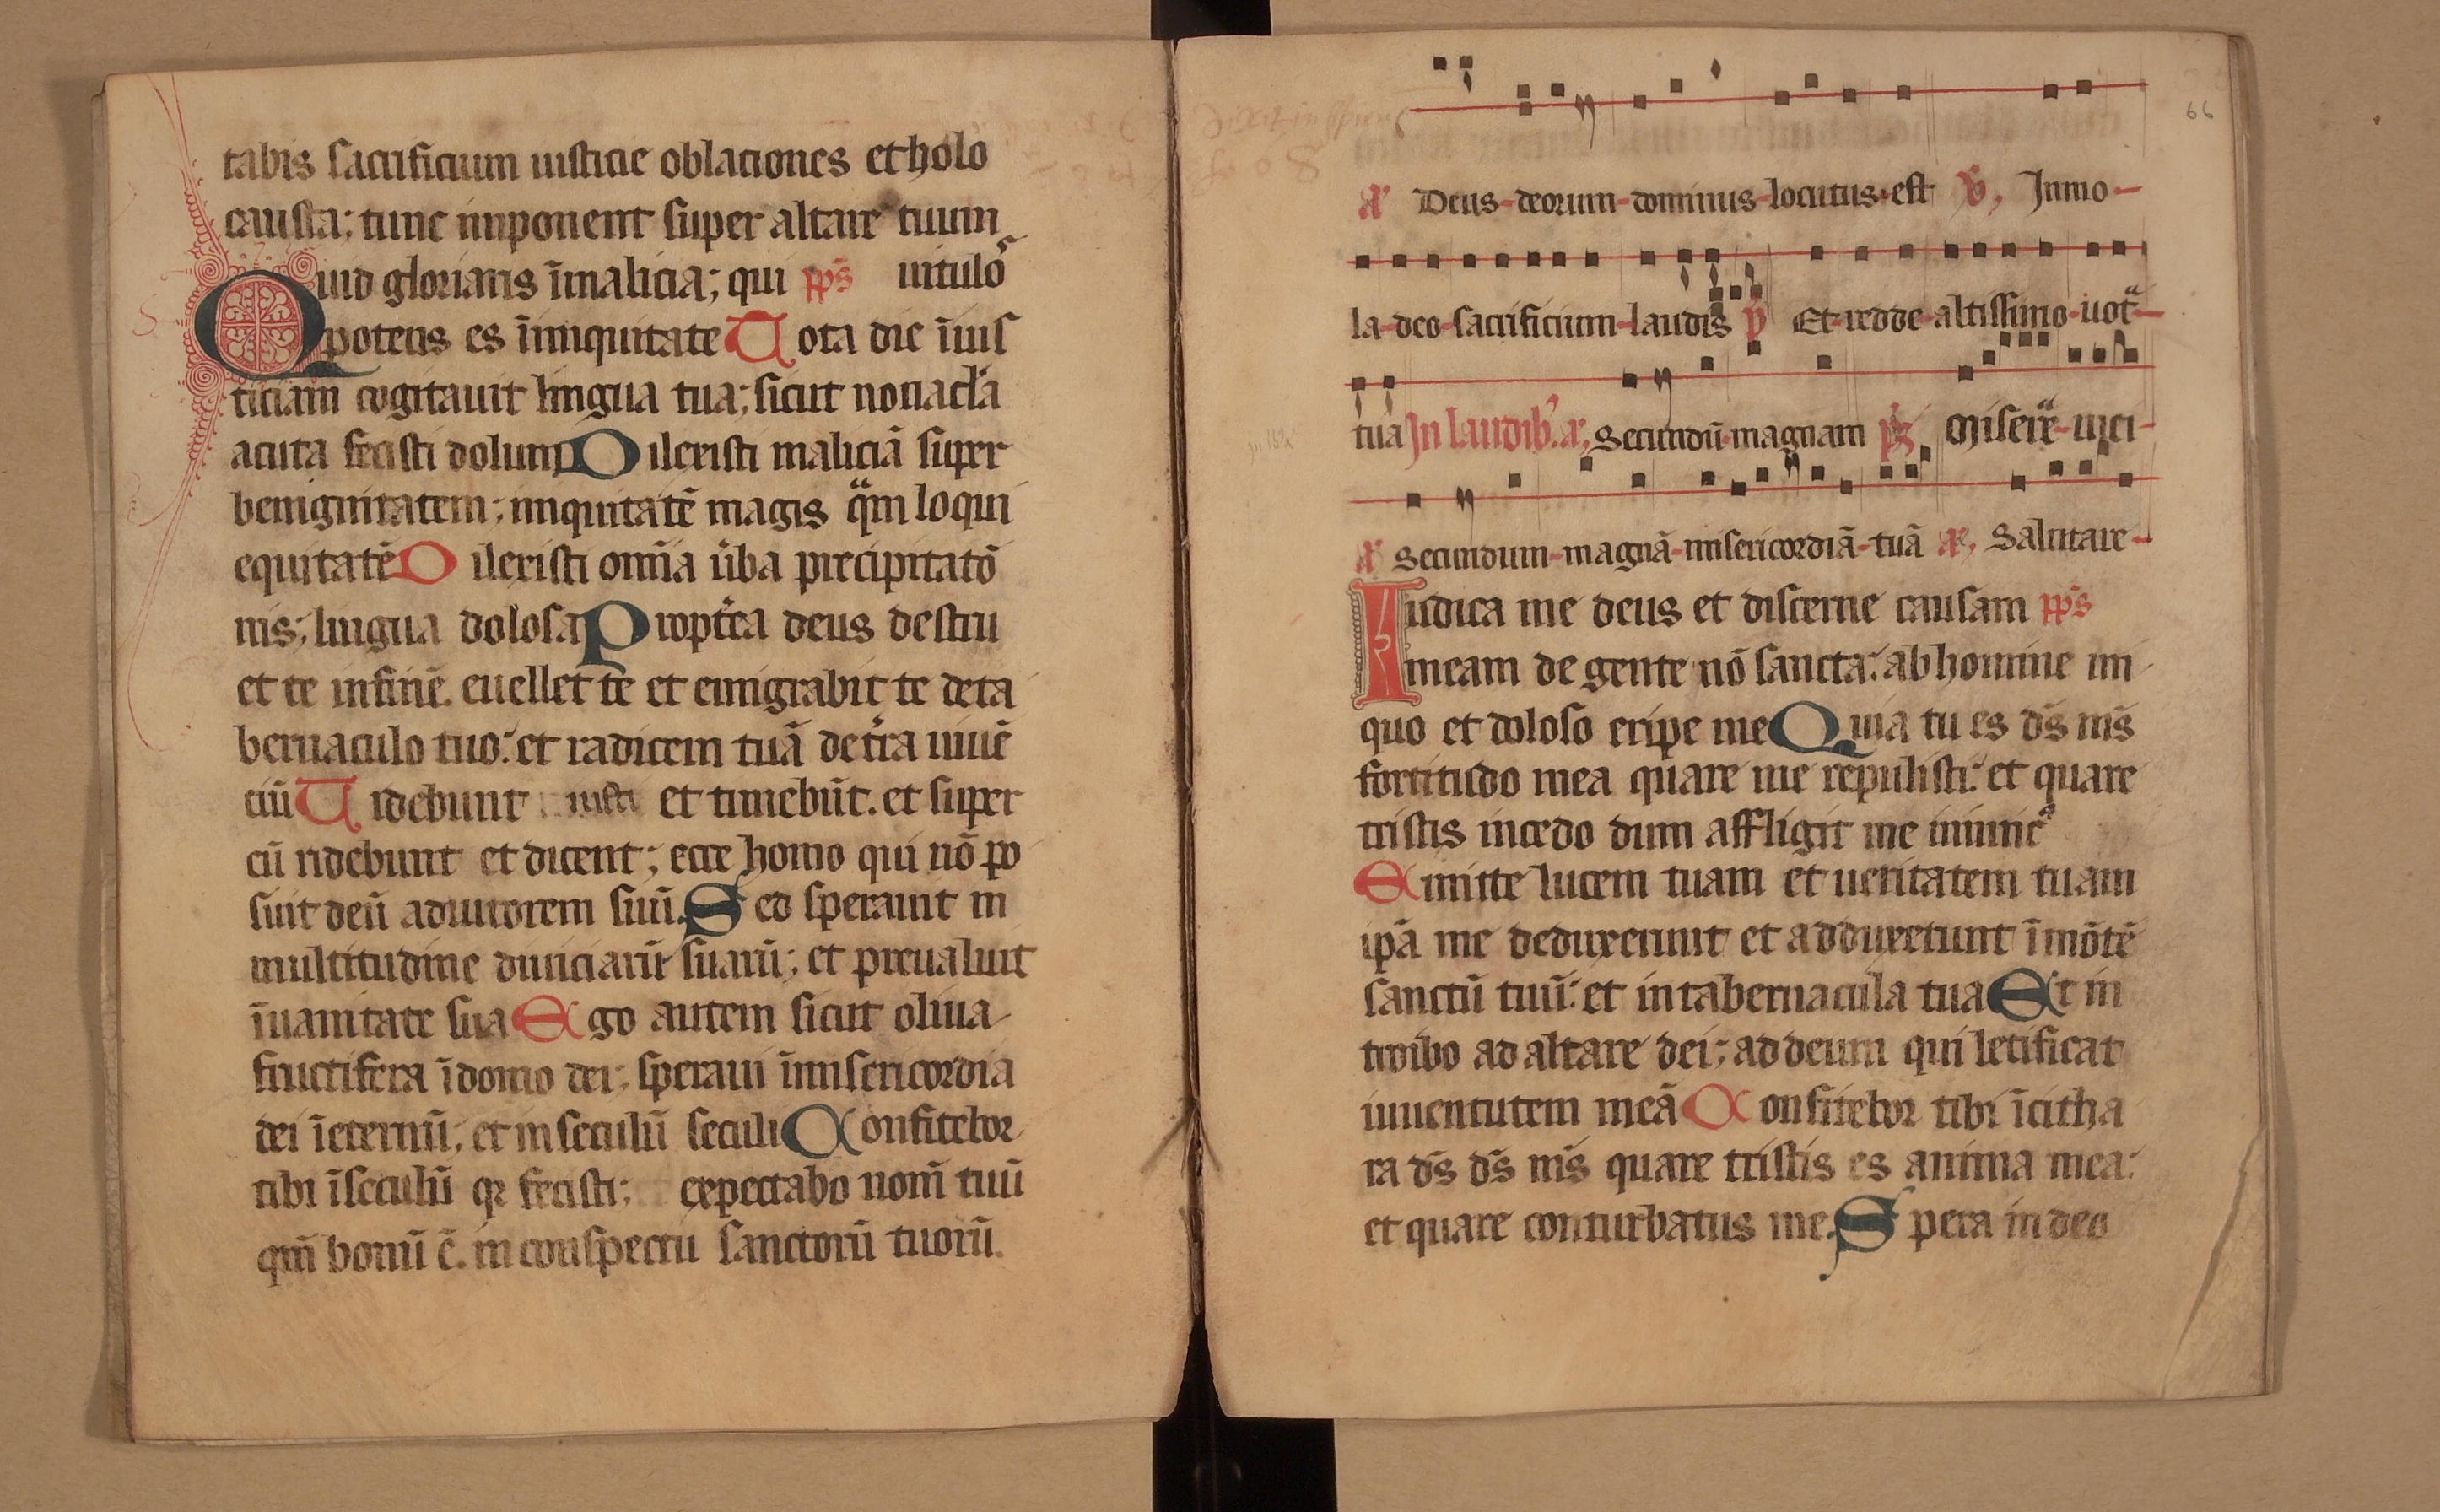 tabis sacrificium iusticie oblaciones et holo
causta; tunc inponent super altare tuum
Quid gloriaris ī malicia; qui pp̄s uitulos
potens es ī iniquitate Tota die ī ius
ticiam cogitauit lingua tua; sicut nouacla
acuta fecisti dolum Dilexisti maliciā super
benignitatem; iniquitatē magis qᵃm loqui
equitatē Dilexisti om̄ia ūba precipitatō
nis; lingua dolosa Propt̄ea deus destru
et te in finē. euellet te et emigrabit te de ta
bernaculo tuo: et radicem tuā de t̄ra uiuē
ciū Videbunt iusti et timebūt. et super
eū ridebunt et dicent; ecce homo qui nō po
suit deū adiutorem suū. Sed sperauit in
multitudine diuiciarū suarū; et preualuit
ī uanitate sua Ego autem sicut oliua
fructifera ī domo dei; speraui ī misericordia
dei ī eternū; et in seculū seculi Confitebor
tibi ī seculū qꝛ fecisti; expectabo nom̄ tuū
qm̄ bonū ē. in conspectu sanctorū tuorū.
66
A Deus-deorum-dominus-locutus-est V, Inmo-
la-deo-sacrificium-laudis p Et-redde-altissimo-uotᵃ-
tua In laudib' a, Secundū-magnam ps Miserē-mei-
A Secundum-magnā-misericordiā-tuā A, Salutare-
Iudica me deus et discerne causam pp̄s
meam de gente nō sancta: ab homine ini
quo et doloso eripe me Quia tu es d̄s m̄s
fortitudo mea quare me repulisti: et quare
tristis incedo dum affligit me inimic⁹
Emitte lucem tuam et ueritatem tuam
ipā me deduxerunt et adduxerunt ī mōtē
sanctū tuū: et in tabernacula tua Et in
troibo ad altare dei; ad deum qui letificat
iuuentutem meā Confitebor tibi ī citha
ra d̄s d̄s m̄s quare tristis es anima mea:
et quare conturbatus me. Spera in deo